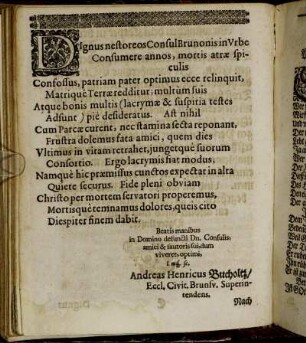 DIgnus nestoreos Consul Brunonis in Vrbe
Consumere annos, mortis atræ spi-
culis
Confossus, patriam pater optimus ecce relinquit,
Matriquè Terræ redditur: multùm suis
Atque bonis multis (lacrymæ & suspitia testes
Adsunt) piè desideratus. Ast nihil
Cum Parcæ curent, nec stamina secta reponant.
Frustra dolemus fata amici, quem dies
Vltimus in vitam retrahet, jungetquè suorum
Consortio. Ergo lacrymis fiat modus;
Namquè hic præmissus cunctos expectat in alta
Quiete securus. Fide pleni obviam
Christo per mortem servatori properemus,
Mortisquè temnamus dolores, queis citò
Diespiter finem dabit.
Beatis manibus
in Domino defuncti Dn. Consulis,
amici & fautoris sui, dum
viveret, optimi,
Andreas Henricus Bucholtz/
Eccl. Civit. Brunsv. Superin-
tendens.
Nach